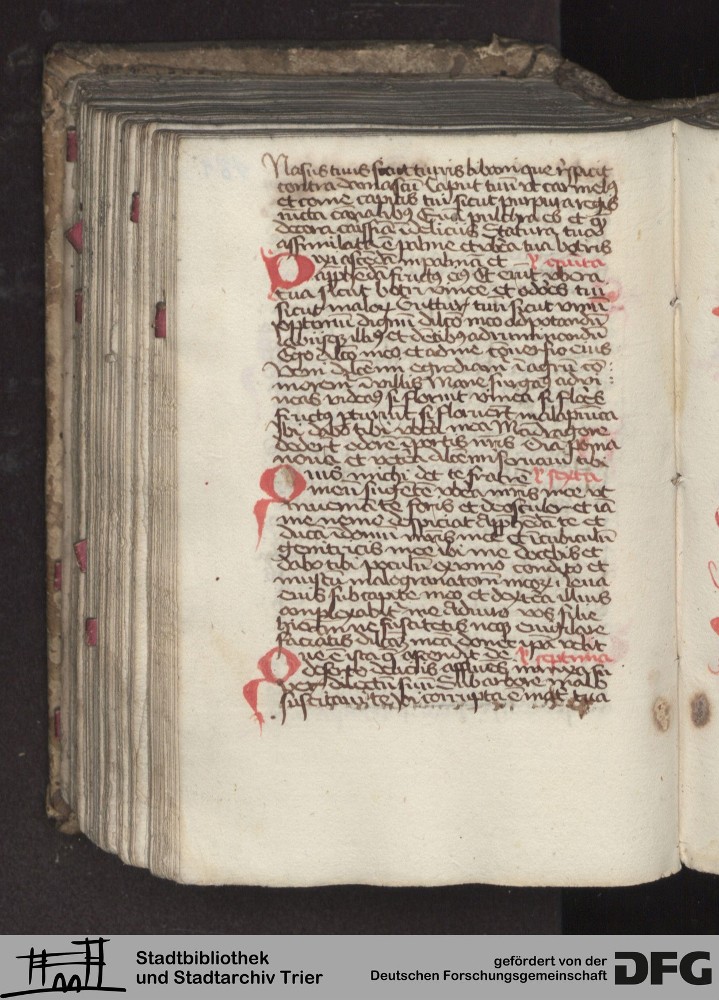 Nasus tuus sicut turris libani que respicit
contra damascum Caput tuum ut carmelus
et come capitis tui sicut purpura regis
iuncta canalibus Quam pulchra es et quam
decora carissima in deliciis Statura tua
assimilata est palme et ubera tua botris
Dixi ascendam in palmam et quinta
apprehendam fructus eius Et erunt ubera
tua sicut botri vinee et odor oris tui
sicut malorum Guttur tuum sicut vinum
optimum dignum dilecto meo ad potandum
labiisque illius et dentibus ad ruminandum
Ego dilecto meo et ad me conversio eius
Veni dilecte mi egrediamur in agrum com
moremur in villis Mane surgamus ad vi
neas videamus si floruit vinea si flores
fructus parturiunt si floruerunt mala punica
Ibi dabo tibi ubera mea Mandragore
dederunt odorem in portis nostris Omnia poma
nova et vetera dilecte mi servavi tibi
Quis michi det te fratrem sexta
meum sugentem ubera matris mee ut
inveniam te foris et deosculer et iam
me nemo despiciat Apprehendam te et
ducam in domum matris mee et in cubiculum
genitricis mee ibi me docebis et
dabo tibi poculum ex vino condito et
mustum malogranatorum meorum Leva
eius sub capite meo et dextera illius
amplexabitur me Adiuro vos filie
hierusalem ne suscitetis neque evigilare
faciatis dilectam mea donec ipsa velit
Que est ista que ascendit de septima
deserto deliciis affluens innixa su
per dilectum suum Sub arbore malo
suscitavi te ibi corrupta est mater tua
Stadtbibliothek
und Stadtarchiv Trier
gefördert von der
Deutschen Forschungsgemeinschaft
DFG